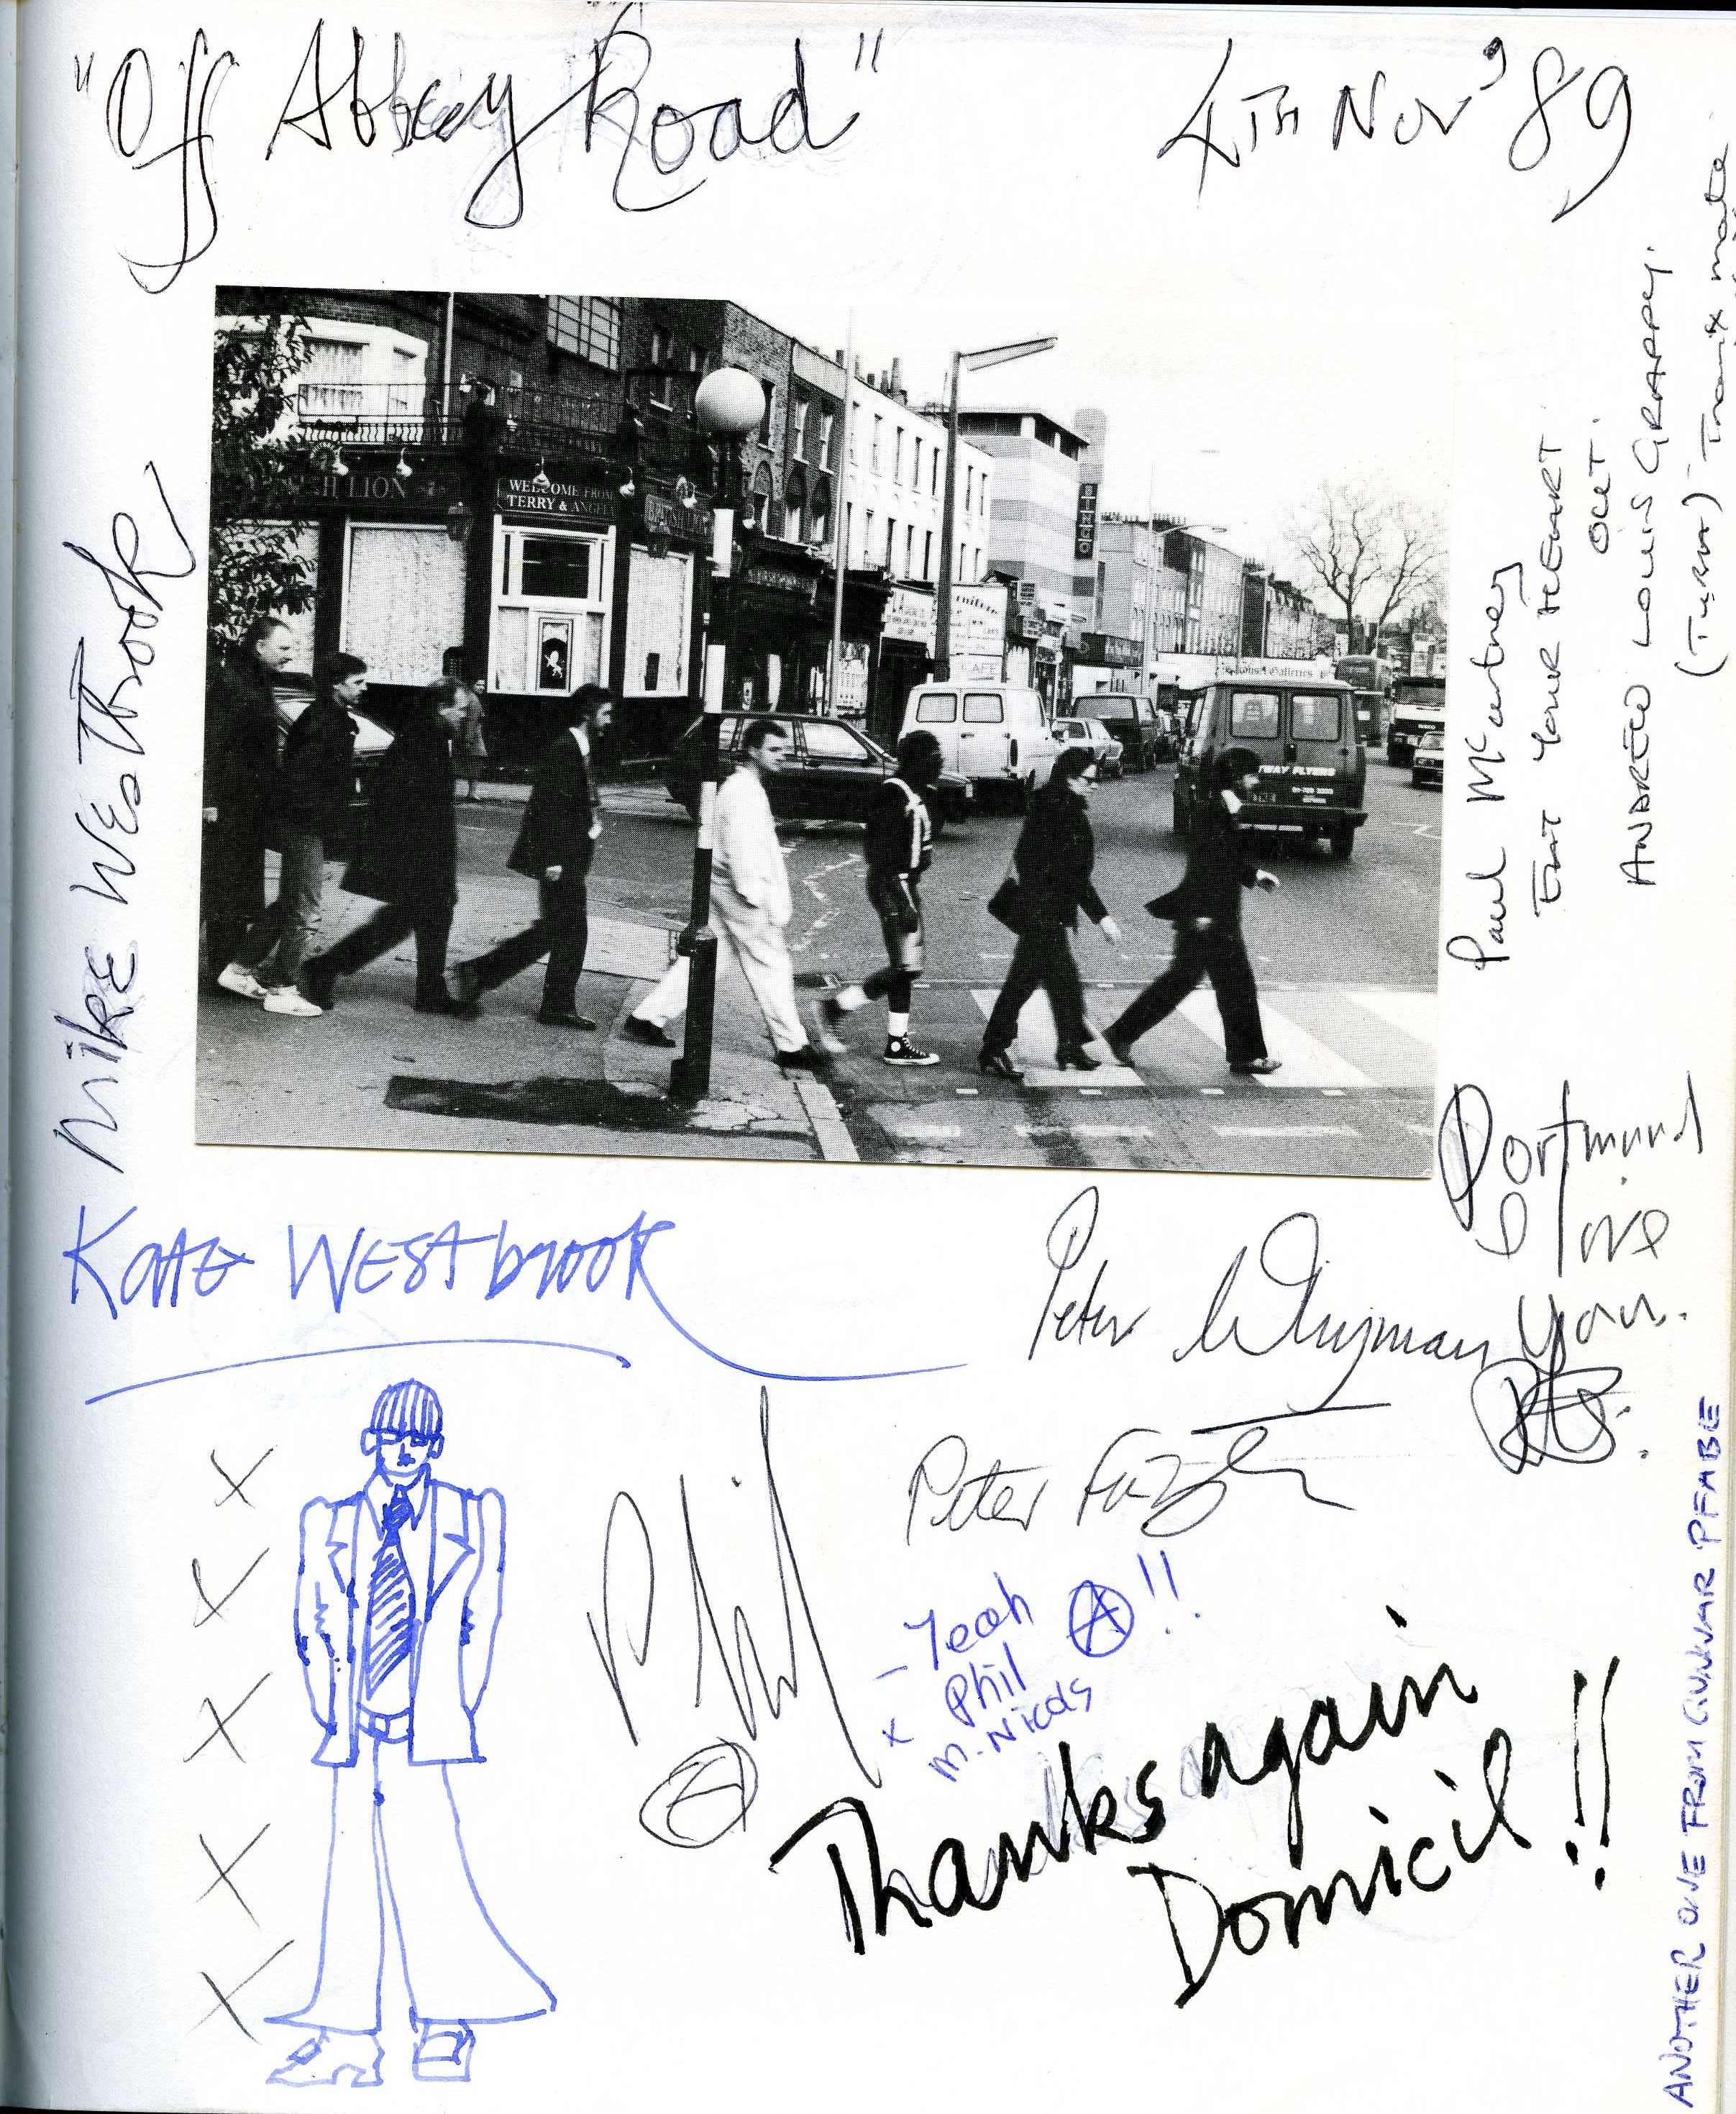 "Off Abbey Road"
4TH Nov '89
MIKE WESTBROOK
LION
WELCOME FROM
TERRY & ANGELA
CAFE
WAY FLYERS
Paul McCartney
EAT YOUR HEART
OUT.
ANDREW LOUIS GRAPPY.
(TUBA) Transit mate
Dortmund
love
you.
KATE WESTBROOK
Peter Whyman
Peter
Phil
A
– Yeah A !!
Phil
x
M. Nicds
Thanks again
Domicil !!
X
X
X
X
X
ANOTHER ONE FROM GUNNAR PFABE